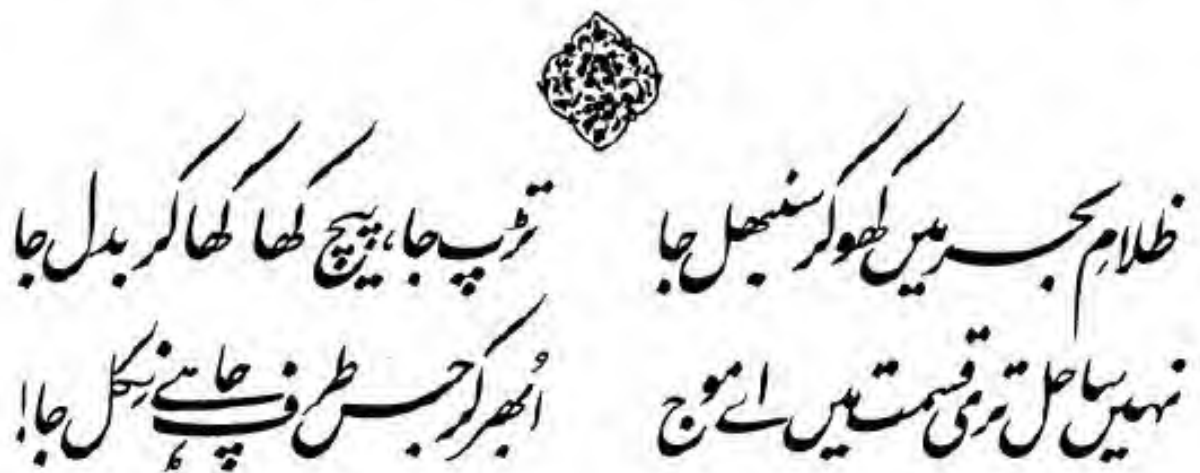 ظلامِ بحر میں کھو کر سنبھل جا تڑپ جا، پیچ کھا کھا کر بدل جا
نہیں ساحل تری قسمت میں اے موج اُبھر کر جس طرف چاہے نِکل جا!